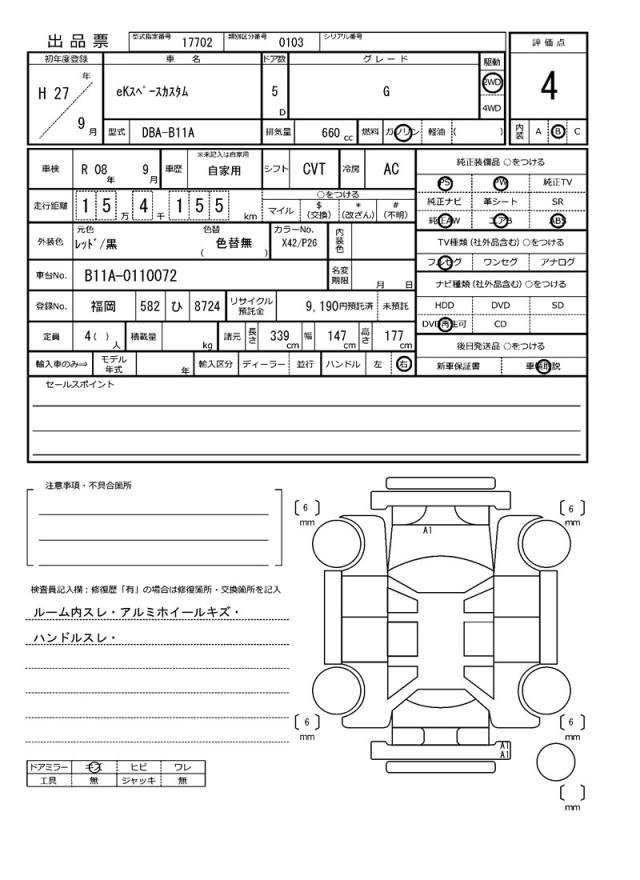 出品票 型式指定番号 17702 類別区分番号 0103 シリアル番号
評価点
4
内装 A B C
初年度登録 車名 ドア数 グレード 駆動
H 27 年 9 月
eKスペースカスタム 5 D G 2WD 4WD
型式 DBA-B11A 排気量 660 cc 燃料 ガソリン 軽油 ( )
車検 R 08 年 9 月 車歴 ※未記入は自家用 自家用 シフト CVT 冷房 AC
走行距離 15 万 4 千 155 km ○をつける
マイル $ (交換) * (改ざん) # (不明)
外装色 元色 レッド/黒 色替 ( 色替無 ) カラーNo. X42/P26 内装色
車台No. B11A-0110072 名変期限 月 日
登録No. 福岡 582 ひ 8724 リサイクル預託金 9,190円預託済 未預託
定員 4( ) 人 積載量 kg 諸元 長さ 339 cm 幅 147 cm 高さ 177 cm
輸入車のみ⇒ モデル年式 年 輸入区分 ディーラー 並行 ハンドル 左 右
純正装備品 ○をつける
PS PW 純正TV
純正ナビ 革シート SR
純正AW エアB ABS
TV種類 (社外品含む) ○をつける
フルセグ ワンセグ アナログ
ナビ種類 (社外品含む) ○をつける
HDD DVD SD
DVD再生可 CD
後日発送品 ○をつける
新車保証書 車輌取説
セールスポイント
注意事項・不具合箇所
検査員記入欄：修復歴「有」の場合は修復箇所・交換箇所を記入
ルーム内スレ・アルミホイールキズ・
ハンドルスレ・
ドアミラー キズ ヒビ ワレ
工具 無 ジャッキ 無
[ 6 ] mm
[ 6 ] mm
A1
[ 6 ] mm
[ 6 ] mm
A1
A1
[ ] mm